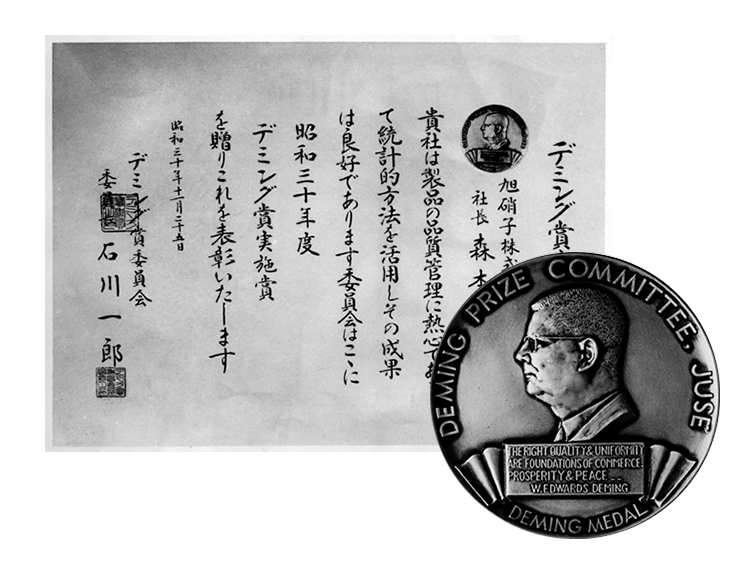 デミング賞
旭硝子株式
社長 森本
貴社は製品の品質管理に熱心であ
て統計的方法を活用しその成果
は良好であります委員会はこゝに
昭和三十年度
デミング賞実施賞
を贈りこれを表彰いたします
昭和三十年十一月二十五日
デミング賞委員会
委員長 石川一郎
DEMING PRIZE COMMITTEE, JUSE
THE RIGHT QUALITY & UNIFORMITY
ARE FOUNDATIONS OF COMMERCE
PROSPERITY & PEACE __
W. EDWARDS DEMING
DEMING MEDAL